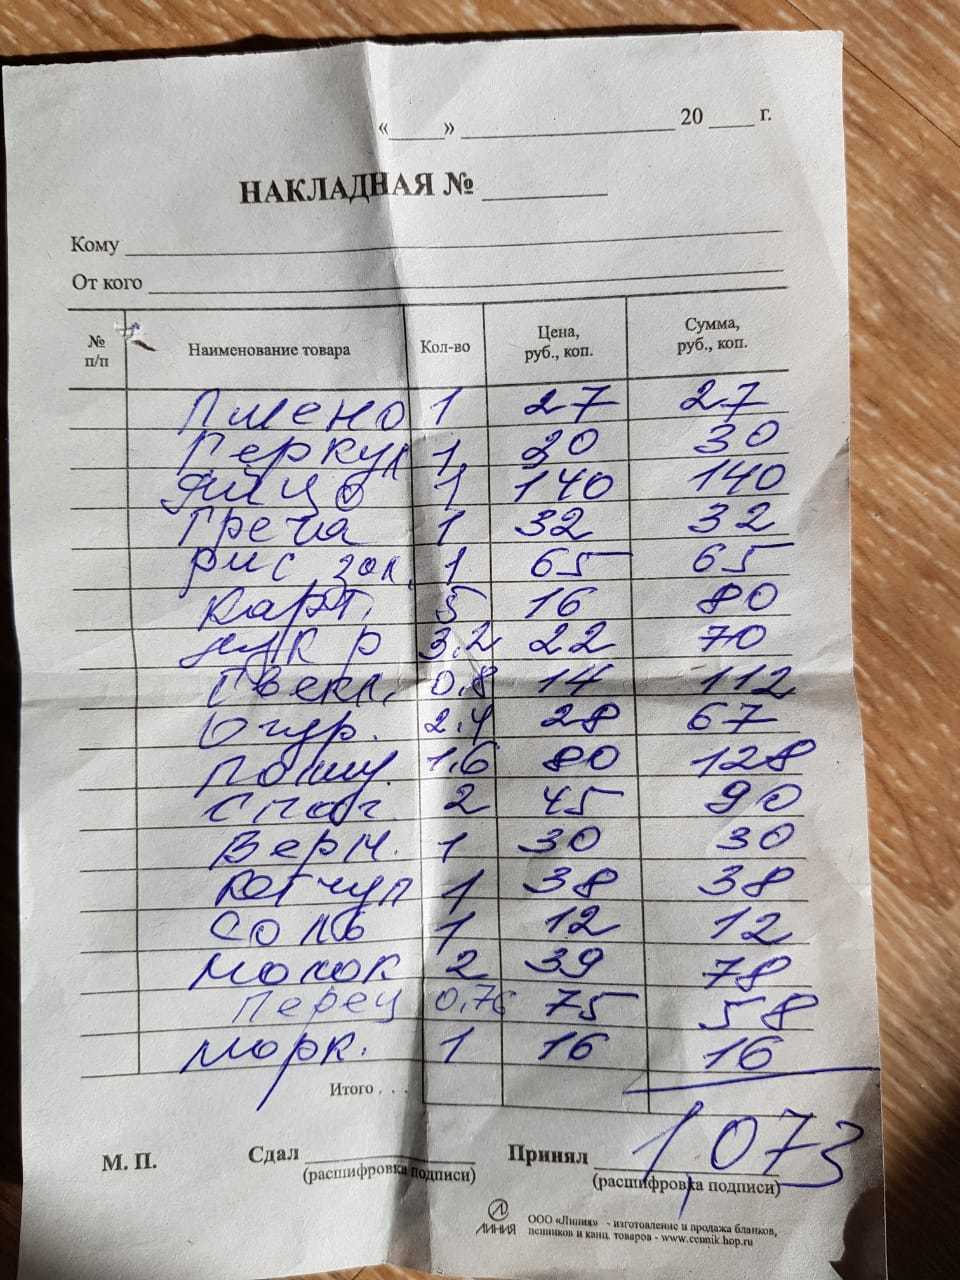 «____» ____________ 20 ____ г.
НАКЛАДНАЯ № ________
Кому
От кого
№ п/п Наименование товара Кол-во Цена, руб., коп. Сумма, руб., коп.
Пшено 1 27 27
Геркул 1 20 30
Яйцо 1 140 140
Греча 1 32 32
Рис зол. 1 65 65
Карт. 5 16 80
Лук р 3.2 22 70
Свекл. 0,8 14 112
Огур. 2.4 28 67
Поми. 1,6 80 128
Спаг. 2 45 90
Верм. 1 30 30
Кетчуп 1 38 38
Соль 1 12 12
Молок 2 39 78
Перец 0,76 75 58
Морк. 1 16 16
Итого . . .
1,073
М. П. Сдал Принял
(расшифровка подписи) (расшифровка подписи)
ЛИНИЯ
ООО «Линия» - изготовление и продажа бланков,
ценников и канц. товаров - www.cennik.hop.ru